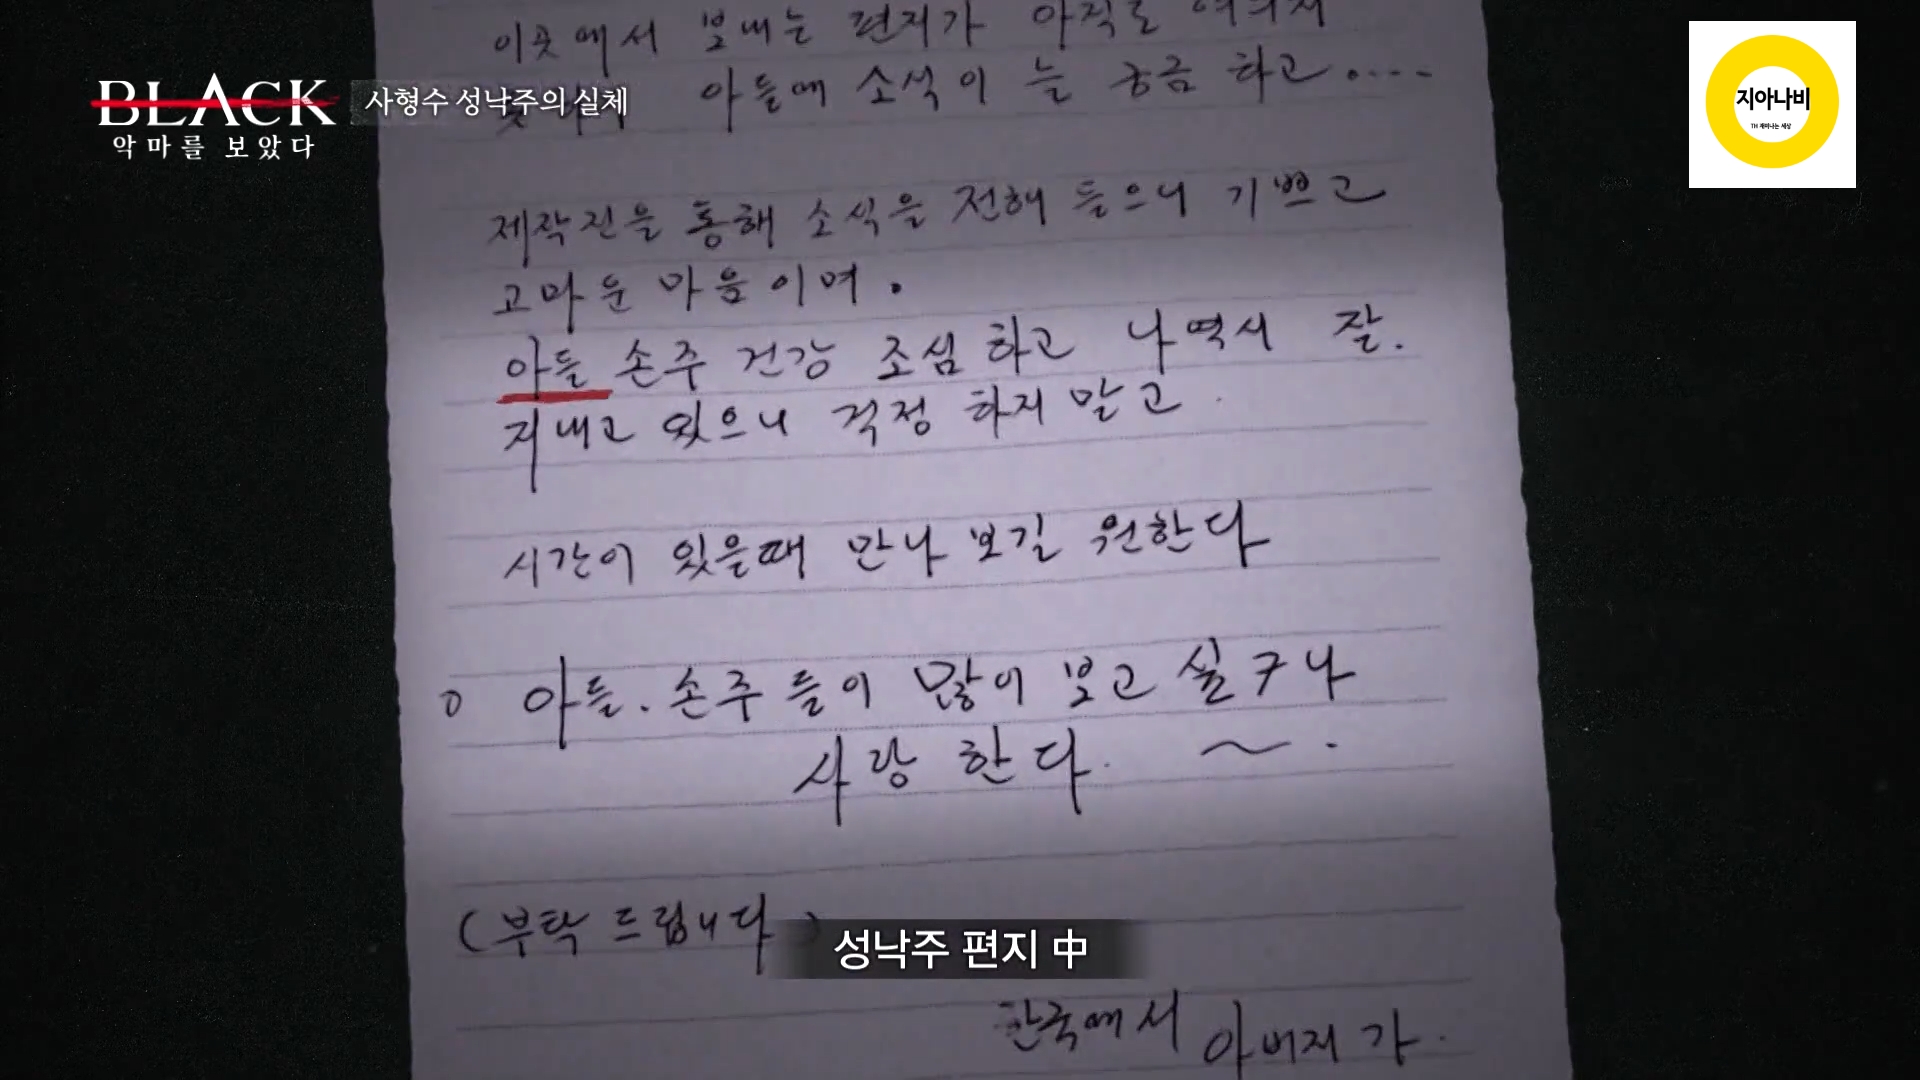 이곳에서 보내는 편지가 아직도
아들에 소식이 늘 궁금 하고.....
BLACK
악마를 보았다
사형수 성낙주의 실체
지아나비
TH 재미나는 세상
제작진을 통해 소식을 전해 들으니 기쁘고
고마운 마음이며.
아들 손주 건강 조심하고 나역시 잘.
지내고 있으니 걱정 하지말고
시간이 있을때 만나 보길 원한다
○ 아들. 손주들이 많이 보고 싶구나
사랑 한다. ~ .
(부탁 드립니다)
성낙주 편지 中
한국에서 아버지가.